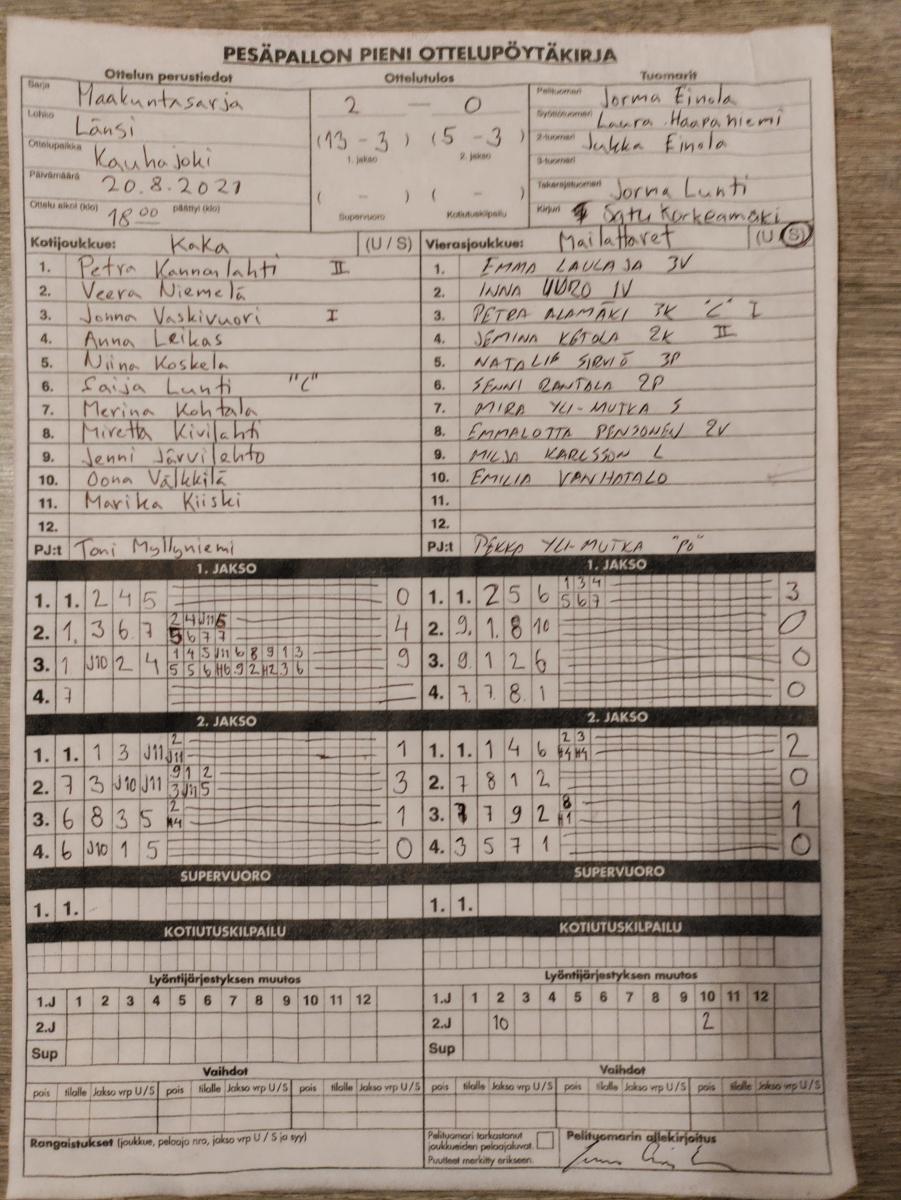 PESÄPALLON PIENI OTTELUPÖYTÄKIRJA
Ottelun perustiedot Ottelutulos Tuomarit
Sarja Maakuntasarja
Lohko Länsi
Ottelupaikka Kauhajoki
Päivämäärä 20.8.2021
Ottelu alkoi (klo) 18 00 päättyi (klo)
2 — 0
(13 - 3) (5 - 3)
1. jakso 2. jakso
( - ) ( - )
Supervuoro Kotiutuskilpailu
Pelituomari Jorma Einola
Syöttötuomari Laura Haapaniemi
2-tuomari Jukka Einola
3-tuomari
Takarajatuomari Jorma Lunti
Kirjuri Satu Korkeamäki
Kotijoukkue: Kaka (U / S)
1. Petra Kannonlahti II
2. Veera Niemelä
3. Jonna Vaskivuori I
4. Anna Leikas
5. Niina Koskela
6. Saija Lunti "C"
7. Merina Kohtala
8. Miretta Kivilahti
9. Jenni Järvilehto
10. Oona Välkkilä
11. Marika Kiiski
12.
PJ:t Toni Myllyniemi
Vierasjoukkue: Mailattaret (U / S)
1. EMMA LAULAJA 3V
2. INNA UURO 1V
3. PETRA ALAMÄKI 3K "C" I
4. JEMINA KETOLA 2K II
5. NATALIE SIRVIÖ 3P
6. SENNI RANTALA 2P
7. MIRA YLI-MUTKA S
8. EMMALOTTA PENSONEN 2V
9. MILJA KARLSSON L
10. EMILIA VANHATALO
11.
12.
PJ:t PEKKA YLI-MUTKA "PO"
1. JAKSO
1. 1. 2 4 5 0
2. 1. 3 6 7 2 4 J11 5 4
5 6 7 7
3. 1 J10 2 4 1 4 5 J11 6 8 9 1 3 9
5 5 6 H6 9 2 H2 3 6
4. 7
1. JAKSO
1. 1. 2 5 6 1 3 4 3
5 6 7
2. 9. 1. 8 10 0
3. 9. 1 2 6 0
4. 7. 7. 8. 1 0
2. JAKSO
1. 1. 1 3 J11 2 1
J11
2. 7 3 J10 J11 9 1 2 3
3 J11 5
3. 6 8 3 5 2 1
H4
4. 6 J10 1 5 0
2. JAKSO
1. 1. 1 4 6 2 3 2
H4 H4
2. 7 8 1 2 0
3. 7 7 9 2 8 1
H1
4. 3 5 7 1 0
SUPERVUORO SUPERVUORO
1. 1. 1. 1.
KOTIUTUSKILPAILU KOTIUTUSKILPAILU
Lyöntijärjestyksen muutos Lyöntijärjestyksen muutos
1.J 1 2 3 4 5 6 7 8 9 10 11 12 1.J 1 2 3 4 5 6 7 8 9 10 11 12
2.J 2.J 10 2
Sup Sup
Vaihdot Vaihdot
pois tilalle Jakso vrp U / S pois tilalle Jakso vrp U / S pois tilalle Jakso vrp U / S pois tilalle Jakso vrp U / S pois tilalle Jakso vrp U / S pois tilalle Jakso vrp U / S
Rangaistukset (joukkue, pelaaja nro, jakso vrp U / S ja syy)
Pelituomari tarkastanut
joukkueiden pelaajaluvat.
Puutteet merkitty erikseen.
Pelituomarin allekirjoitus